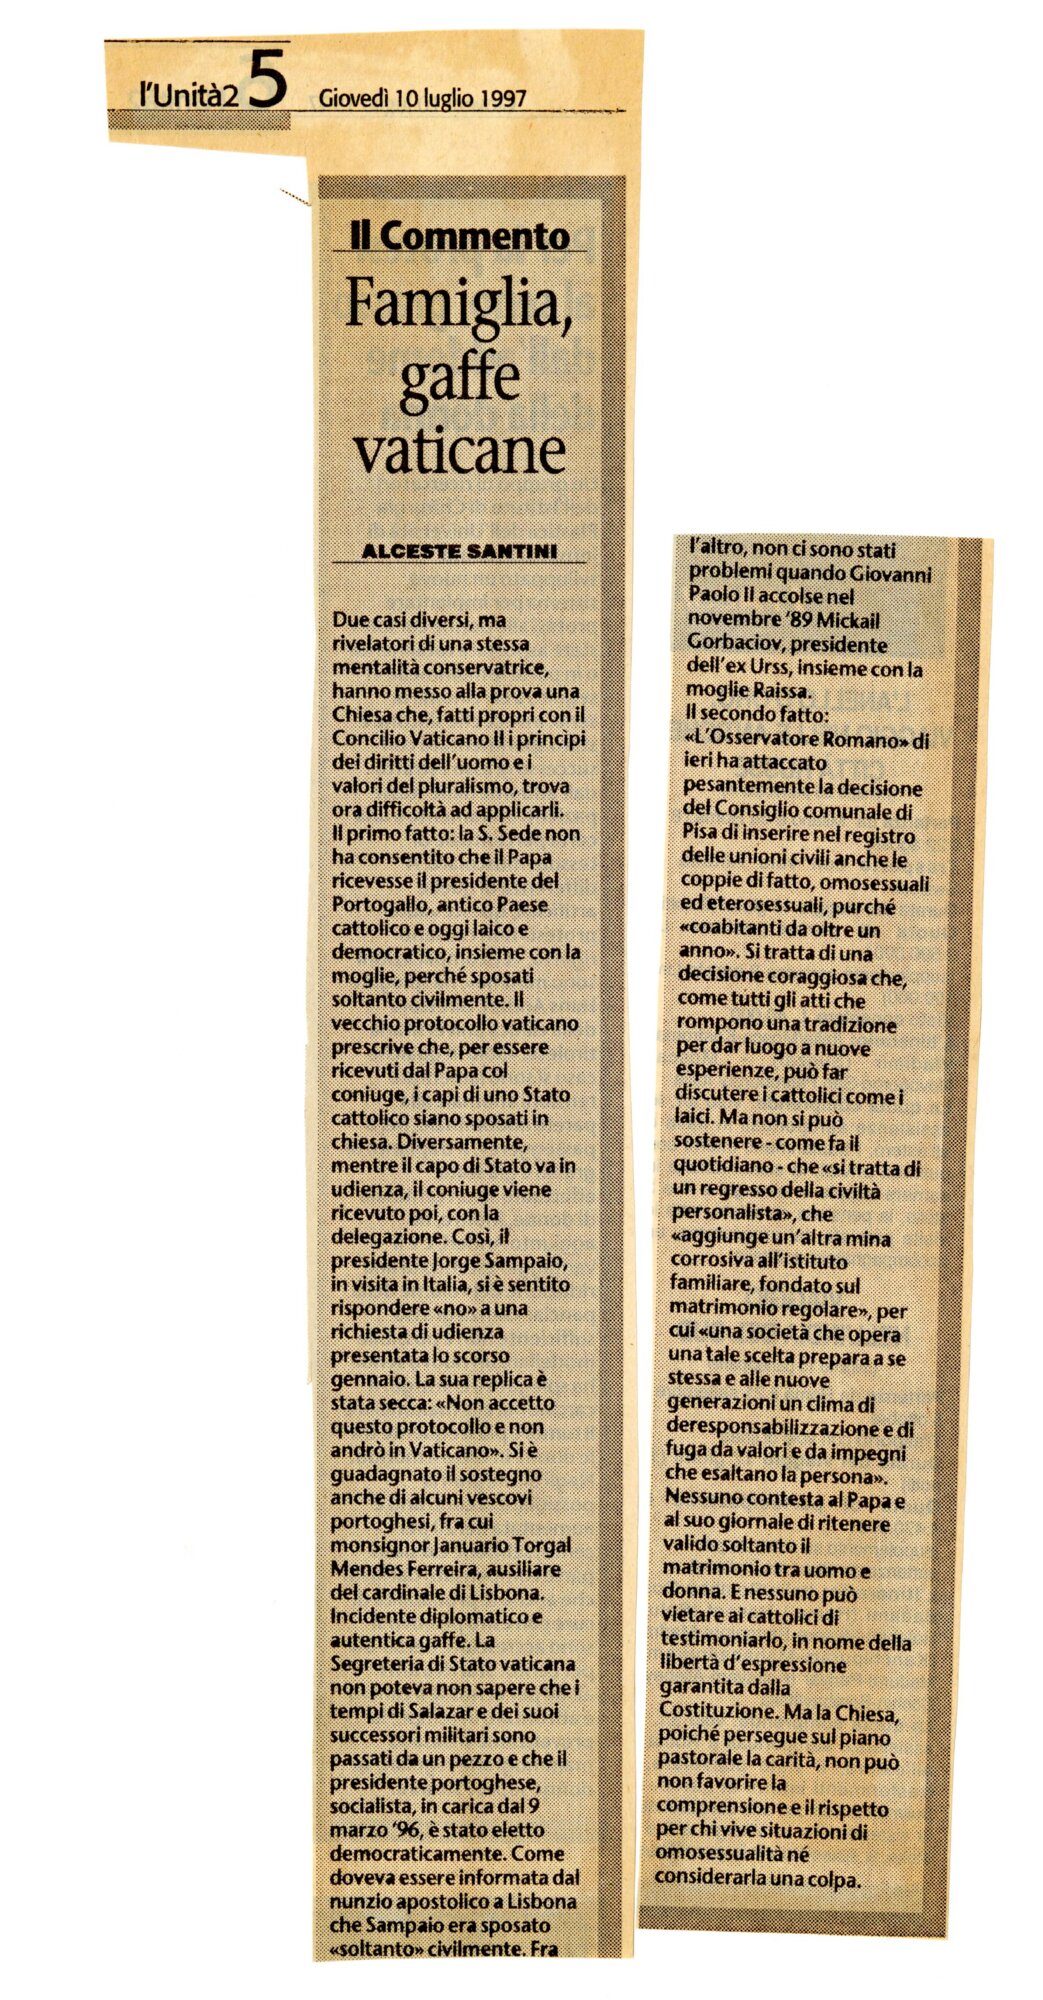 l'Unità2 5 Giovedì 10 luglio 1997
Il Commento
Famiglia,
gaffe
vaticane
ALCESTE SANTINI
Due casi diversi, ma
rivelatori di una stessa
mentalità conservatrice,
hanno messo alla prova una
Chiesa che, fatti propri con il
Concilio Vaticano II i princìpi
dei diritti dell'uomo e i
valori del pluralismo, trova
ora difficoltà ad applicarli.
Il primo fatto: la S. Sede non
ha consentito che il Papa
ricevesse il presidente del
Portogallo, antico Paese
cattolico e oggi laico e
democratico, insieme con la
moglie, perché sposati
soltanto civilmente. Il
vecchio protocollo vaticano
prescrive che, per essere
ricevuti dal Papa col
coniuge, i capi di uno Stato
cattolico siano sposati in
chiesa. Diversamente,
mentre il capo di Stato va in
udienza, il coniuge viene
ricevuto poi, con la
delegazione. Così, il
presidente Jorge Sampaio,
in visita in Italia, si è sentito
rispondere «no» a una
richiesta di udienza
presentata lo scorso
gennaio. La sua replica è
stata secca: «Non accetto
questo protocollo e non
andrò in Vaticano». Si è
guadagnato il sostegno
anche di alcuni vescovi
portoghesi, fra cui
monsignor Januario Torgal
Mendes Ferreira, ausiliare
del cardinale di Lisbona.
Incidente diplomatico e
autentica gaffe. La
Segreteria di Stato vaticana
non poteva non sapere che i
tempi di Salazar e dei suoi
successori militari sono
passati da un pezzo e che il
presidente portoghese,
socialista, in carica dal 9
marzo '96, è stato eletto
democraticamente. Come
doveva essere informata dal
nunzio apostolico a Lisbona
che Sampaio era sposato
«soltanto» civilmente. Fra
l'altro, non ci sono stati
problemi quando Giovanni
Paolo II accolse nel
novembre '89 Mickail
Gorbaciov, presidente
dell'ex Urss, insieme con la
moglie Raissa.
Il secondo fatto:
«L'Osservatore Romano» di
ieri ha attaccato
pesantemente la decisione
del Consiglio comunale di
Pisa di inserire nel registro
delle unioni civili anche le
coppie di fatto, omosessuali
ed eterosessuali, purché
«coabitanti da oltre un
anno». Si tratta di una
decisione coraggiosa che,
come tutti gli atti che
rompono una tradizione
per dar luogo a nuove
esperienze, può far
discutere i cattolici come i
laici. Ma non si può
sostenere - come fa il
quotidiano - che «si tratta di
un regresso della civiltà
personalista», che
«aggiunge un'altra mina
corrosiva all'istituto
familiare, fondato sul
matrimonio regolare», per
cui «una società che opera
una tale scelta prepara a se
stessa e alle nuove
generazioni un clima di
deresponsabilizzazione e di
fuga da valori e da impegni
che esaltano la persona».
Nessuno contesta al Papa e
al suo giornale di ritenere
valido soltanto il
matrimonio tra uomo e
donna. E nessuno può
vietare ai cattolici di
testimoniarlo, in nome della
libertà d'espressione
garantita dalla
Costituzione. Ma la Chiesa,
poiché persegue sul piano
pastorale la carità, non può
non favorire la
comprensione e il rispetto
per chi vive situazioni di
omosessualità né
considerarla una colpa.